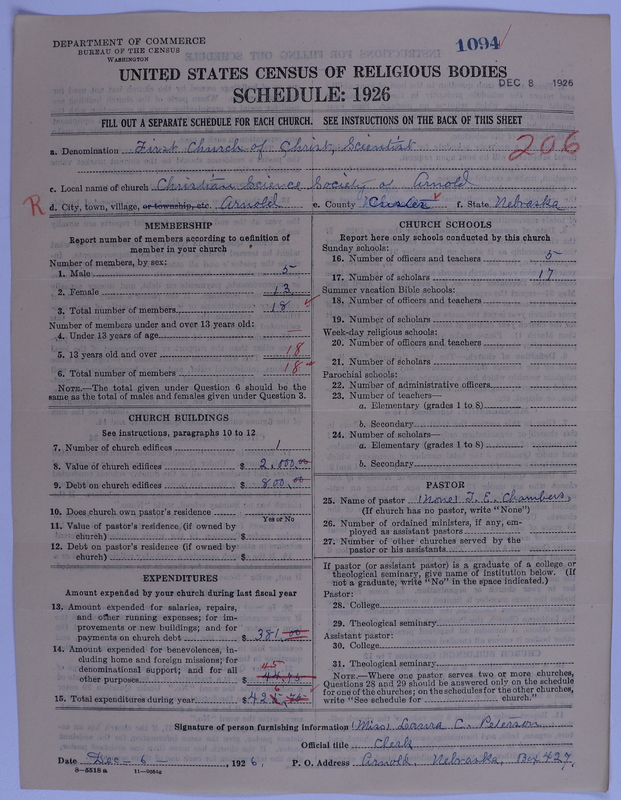 DEPARTMENT OF COMMERCE
BUREAU OF THE CENSUS
WASHINGTON
1094
UNITED STATES CENSUS OF RELIGIOUS BODIES
DEC 8 1926
SCHEDULE: 1926
FILL OUT A SEPARATE SCHEDULE FOR EACH CHURCH. SEE INSTRUCTIONS ON THE BACK OF THIS SHEET
206
a. Denomination First Church of Christ, Scientist
c. Local name of church Christian Science Society of Arnold
R d. City, town, village, or township, etc. Arnold e. County Custer f. State Nebraska
MEMBERSHIP
Report number of members according to definition of
member in your church
Number of members, by sex:
1. Male 5
2. Female 13
3. Total number of members 18
Number of members under and over 13 years old:
4. Under 13 years of age —
5. 13 years old and over 18
6. Total number of members 18
NOTE.—The total given under Question 6 should be
same as the total of males and females given under Question 3.
CHURCH BUILDINGS
See instructions, paragraphs 10 to 12
7. Number of church edifices 1
8. Value of church edifices $ 2,000.00
9. Debt on church edifices $ 800.00
10. Does church own pastor's residence
Yes or No
11. Value of pastor's residence (if owned by
church) $
12. Debt on pastor's residence (if owned by
church) $
EXPENDITURES
Amount expended by your church during last fiscal year
13. Amount expended for salaries, repairs,
and other running expenses; for im-
provements or new buildings; and for
payments on church debt $ 381.00
14. Amount expended for benevolences, in-
cluding home and foreign missions; for
denominational support; and for all
45
other purposes $ 44.75
15. Total expenditures during year $
CHURCH SCHOOLS
Report here only schools conducted by this church
Sunday schools:
16. Number of officers and teachers 5
17. Number of scholars 17
Summer vacation Bible schools:
18. Number of officers and teachers
19. Number of scholars
Week-day religious schools:
20. Number of officers and teachers
21. Number of scholars
Parochial schools:
22. Number of administrative officers
23. Number of teachers—
a. Elementary (grades 1 to 8)
b. Secondary
24. Number of scholars—
a. Elementary (grades 1 to 8)
b. Secondary
PASTOR
25. Name of pastor (None) T. E. Chambers
(If church has no pastor, write "None")
26. Number of ordained ministers, if any, em-
ployed as assistant pastors
27. Number of other churches served by the
pastor or his assistants
If pastor (or assistant pastor) is a graduate of a college or
theological seminary, give name of institution below. (If
not a graduate, write "No" in the space indicated.)
Pastor:
28. College
29. Theological seminary
Assistant pastor:
30. College
31. Theological seminary
NOTE.—Where one pastor serves two or more churches,
Questions 28 and 29 should be answered only on the schedule
for one of the churches; on the schedules for the other churches,
write "See schedule for church."
Signature of person furnishing information (Miss) C. Peterson
Official title Clerk
Date Dec - 6 - , 1926. P. O. Address Arnold Nebraska, Box 427,
8—5518a